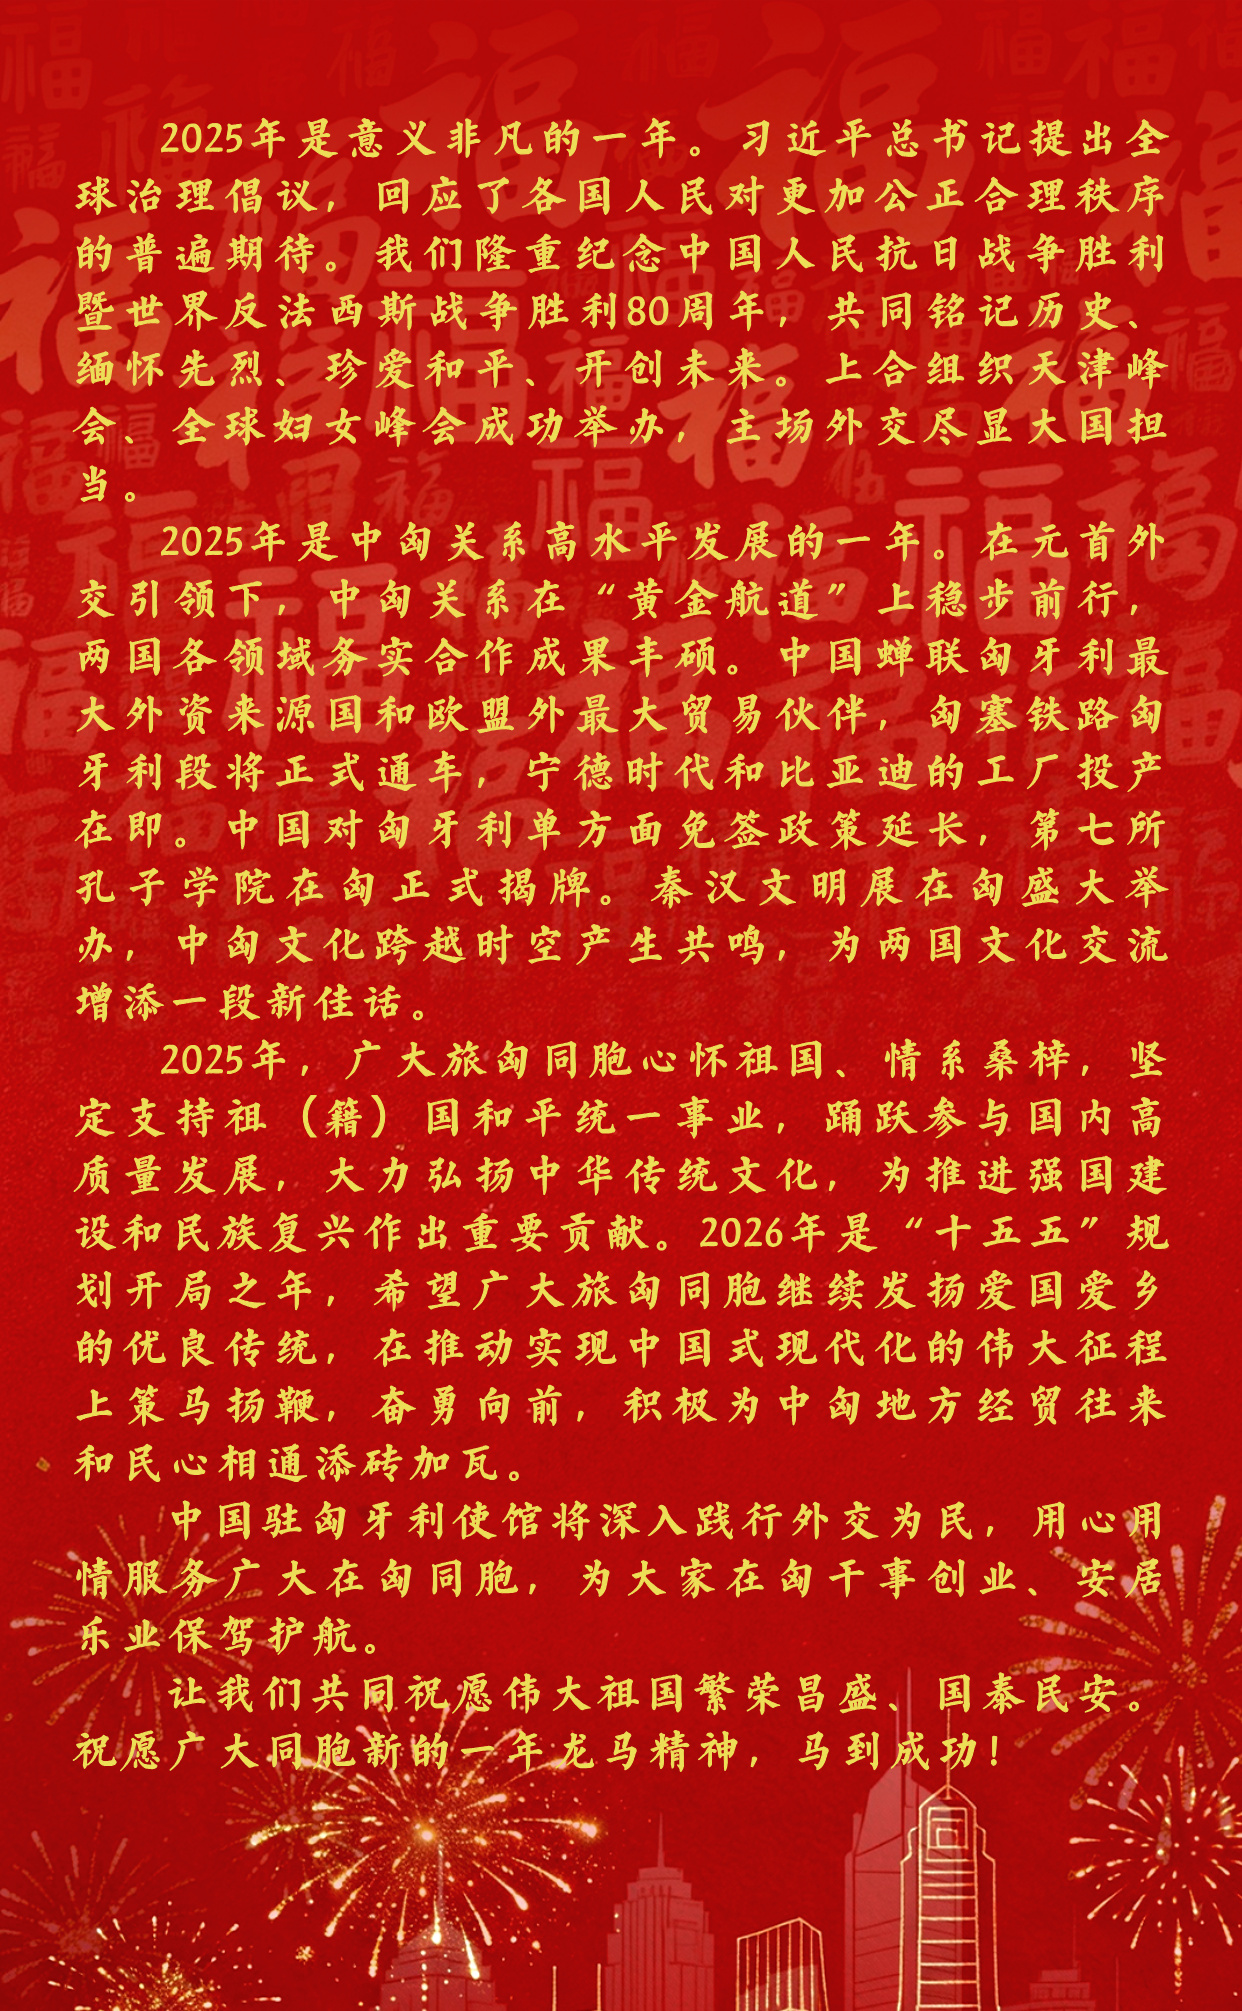 2025年是意义非凡的一年。习近平总书记提出全
球治理倡议，回应了各国人民对更加公正合理秩序
的普遍期待。我们隆重纪念中国人民抗日战争胜利
暨世界反法西斯战争胜利80周年，共同铭记历史、
缅怀先烈、珍爱和平、开创未来。上合组织天津峰
会、全球妇女峰会成功举办，主场外交尽显大国担
当。
2025年是中匈关系高水平发展的一年。在元首外
交引领下，中匈关系在“黄金航道”上稳步前行，
两国各领域务实合作成果丰硕。中国蝉联匈牙利最
大外资来源国和欧盟外最大贸易伙伴，匈塞铁路匈
牙利段将正式通车，宁德时代和比亚迪的工厂投产
在即。中国对匈牙利单方面免签政策延长，第七所
孔子学院在匈正式揭牌。秦汉文明展在匈盛大举
办，中匈文化跨越时空产生共鸣，为两国文化交流
增添一段新佳话。
2025年，广大旅匈同胞心怀祖国、情系桑梓，坚
定支持祖（籍）国和平统一事业，踊跃参与国内高
质量发展，大力弘扬中华传统文化，为推进强国建
设和民族复兴作出重要贡献。2026年是“十五五”规
划开局之年，希望广大旅匈同胞继续发扬爱国爱乡
的优良传统，在推动实现中国式现代化的伟大征程
上策马扬鞭，奋勇向前，积极为中匈地方经贸往来
和民心相通添砖加瓦。
中国驻匈牙利使馆将深入践行外交为民，用心用
情服务广大在匈同胞，为大家在匈干事创业、安居
乐业保驾护航。
让我们共同祝愿伟大祖国繁荣昌盛、国泰民安。
祝愿广大同胞新的一年龙马精神，马到成功！